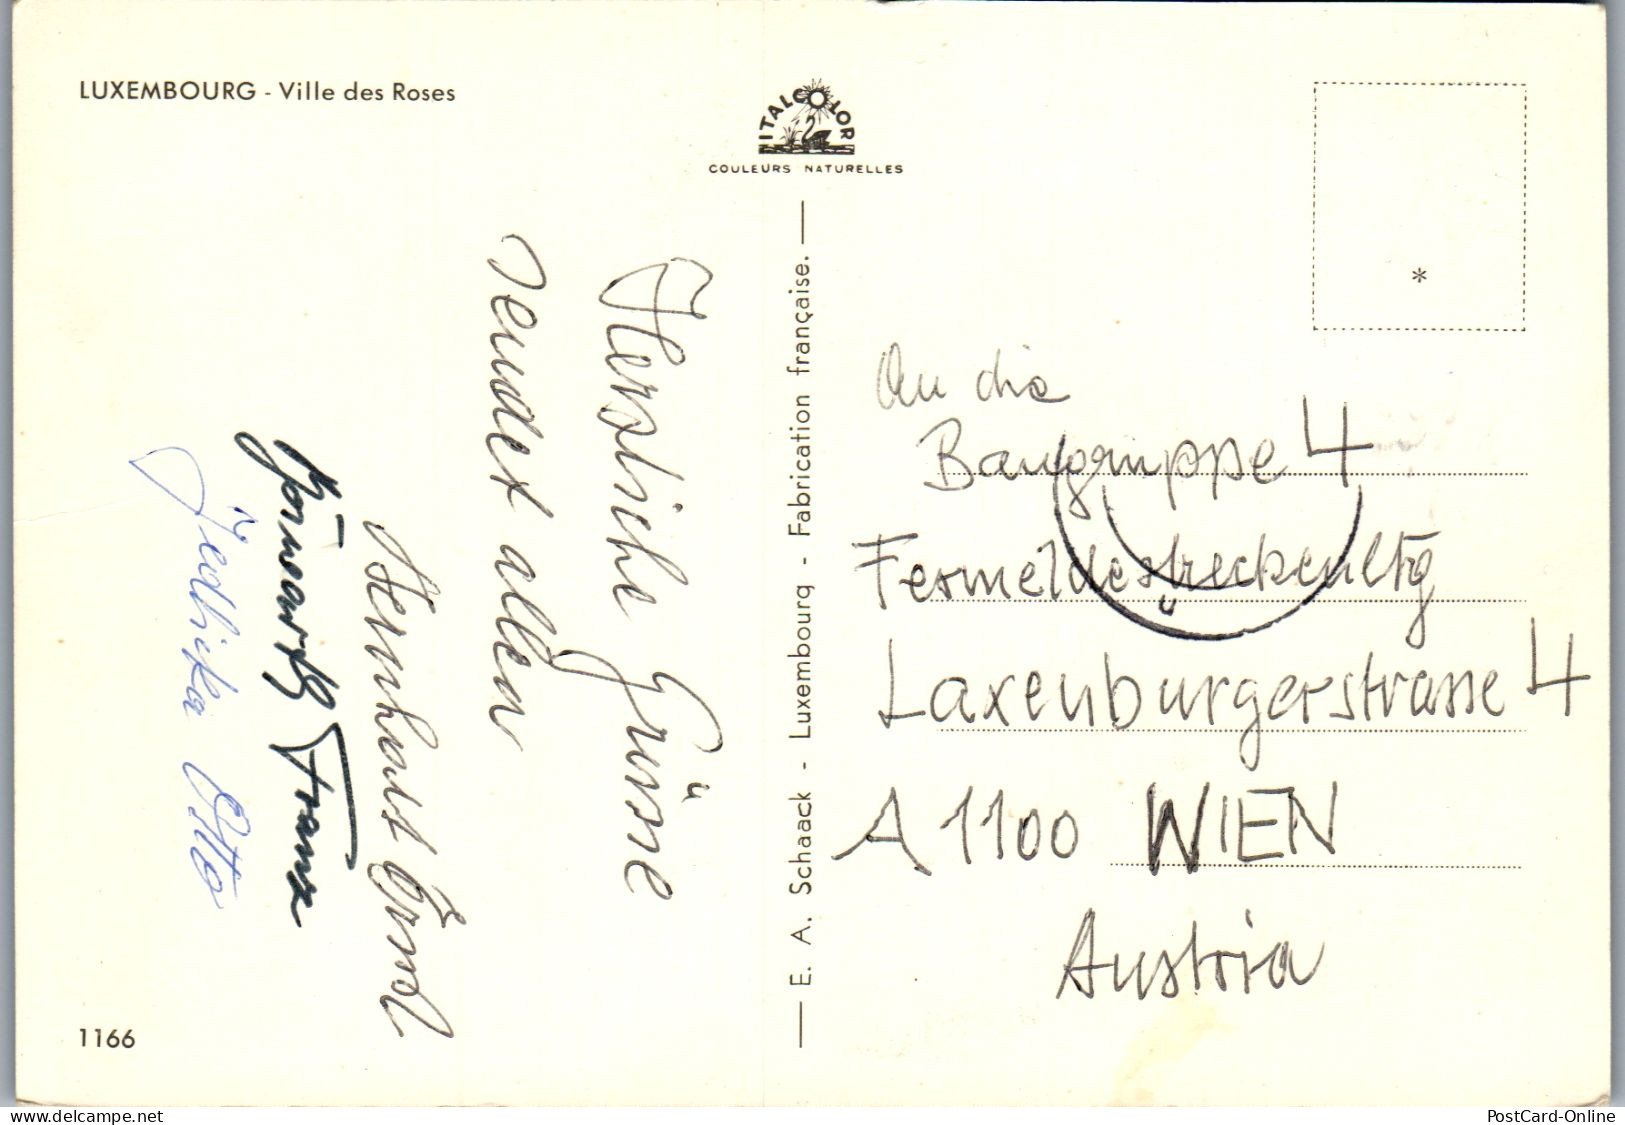 LUXEMBOURG - Ville des Roses
ITALCOLOR
COULEURS NATURELLES
Herzliche Grüsse
sendet allen
Franz
Jedlicka Otto
E. A. Schaack - Luxembourg - Fabrication française.
*
An die
Baugruppe 4
Fermeldestreckenltg
Laxenburgerstrasse 4
A 1100 WIEN
Austria
1166
delcampe.net
the collector
PostCard-Online